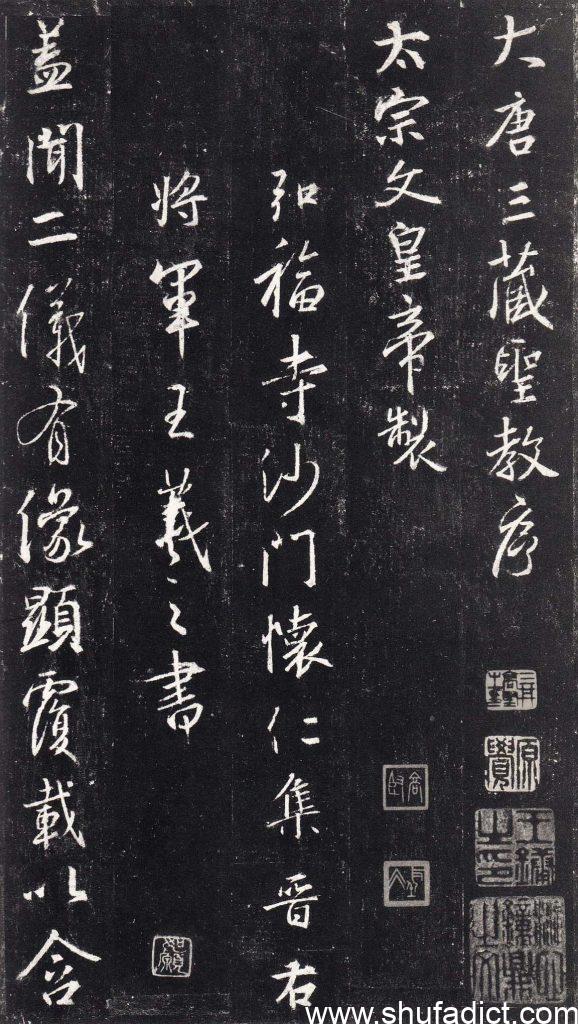 大唐三藏聖教序
太宗文皇帝製
弘福寺沙門懷仁集晉右
將軍王羲之書
蓋聞二儀有像顯覆載以含
www.shufadict.com